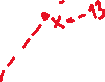 x 13